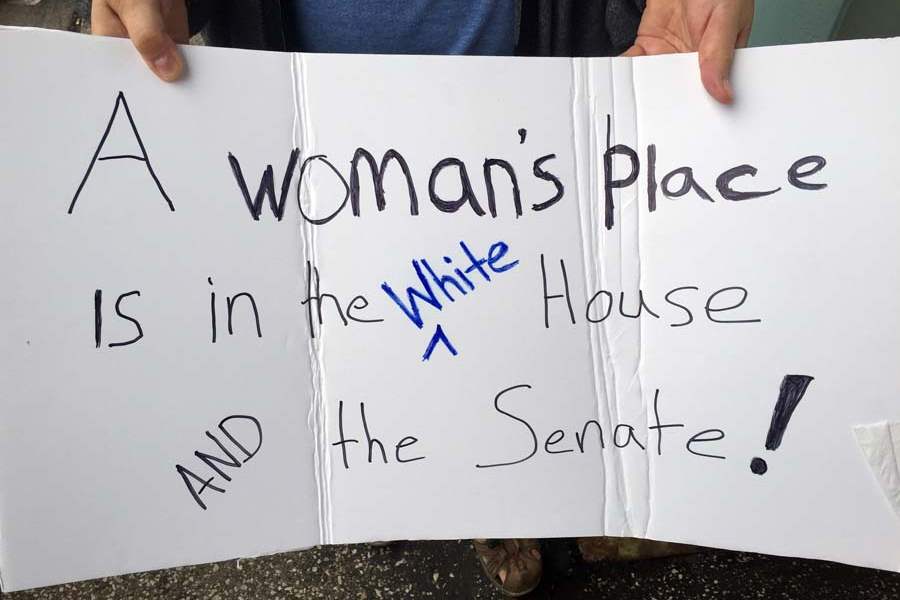 A woman's place
IS in the White House
AND the Senate!